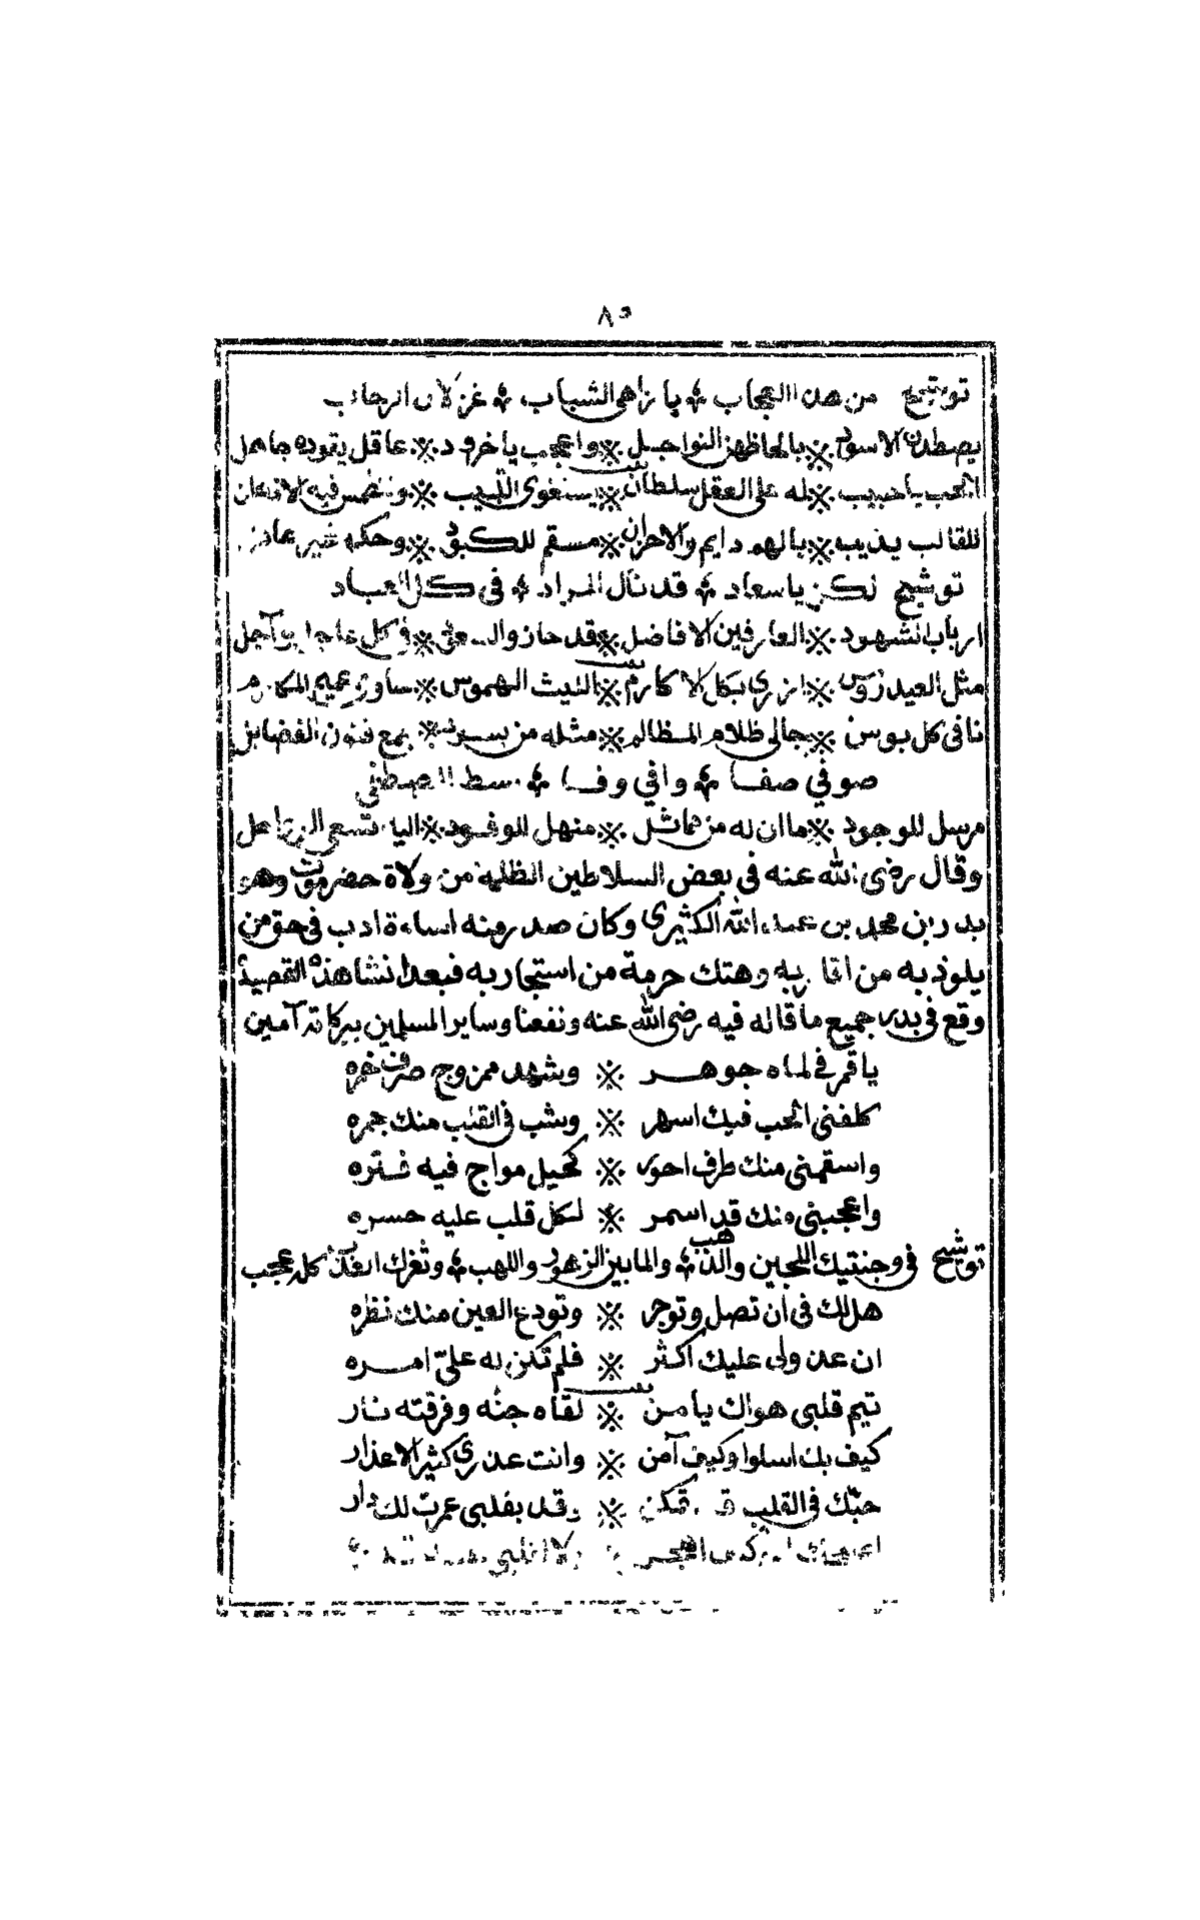 ٨٥
توشيح من هذا العجاب ؞ يا زاهى الشباب ؞ غزلان
يصطدن الاسود ※ بالحاظهن النواجل ※ واعجب ياخرود ※ عاقل يقوده جاهل
الحب ياحبيب ※ له على العقل سلطان ※ يستغوى اللبيب ※ فيه الاذهان
للقالب يذيب ※ بالهم دايم والاحزان ※ مسقم للكبود ※ وحكمه غير عادل
توشيح لكن ياسعاد ؞ قد نال المراد ؞ فى كل العباد
ارباب الشهود ※ العارفين الافاضل ※ قد حازوا ※ فى كل
مثل العيدروس ※ ازرى بكل الاكارم ※ الليث الهموس ※ ساوى عميم المكارم
نافى كل بوس ※ جالى ظلام المظالم ※ مثله من يسود ※ بجمع فنون الفضايل
صوفي صفا ؞ وافي وفا ؞ سبط المصطفى
مرسل للوجود ※ ما ان له من مماثل ※ منهل للوفود ※ اليه تسعى الرواحل
وقال رضى الله عنه فى بعض السلاطين الظلمة من ولاة حضرموت وهو
بدر بن محمد بن عبد الله الكثيرى وكان صدر منه اساءة ادب فى حق من
يلوذ به من اقاربه وهتك حرمة من استجار به فبعد انشا هذه القصيدة
وقع فى بدر جميع ما قاله فيه رضى الله عنه ونفعنا وساير المسلمين ببركاته آمين
يا قمر فى لماه جوهر ※ وشهد ممزوج صرف خمره
كلفنى الحب فيك اسهر ※ وشب فى القلب منك جمره
واسقمنى منك طرف احور ※ كحيل مواج فيه فتره
واعجبنى منك قد اسمر ※ لكل قلب عليه حسره
توشيح فى وجنتيك اللجين والذهب ؞ والمابين الزهور واللهب ؞ وثغرك كله عجب
هل لك فى ان تصل وتوجر ※ وتودع العين منك نظره
ان عذولى عليك اكثر ※ فلم تكن له علىّ امره
بيت
تيم قلبى هواك يا من ※ لقاه جنه وفرقته نار
كيف بك اسلوا وكيف آمن ※ وانت عذرى كثير الاعذار
حبّك فى القلب قد تمكن ※ وقد بقلبى عمرت لك دار